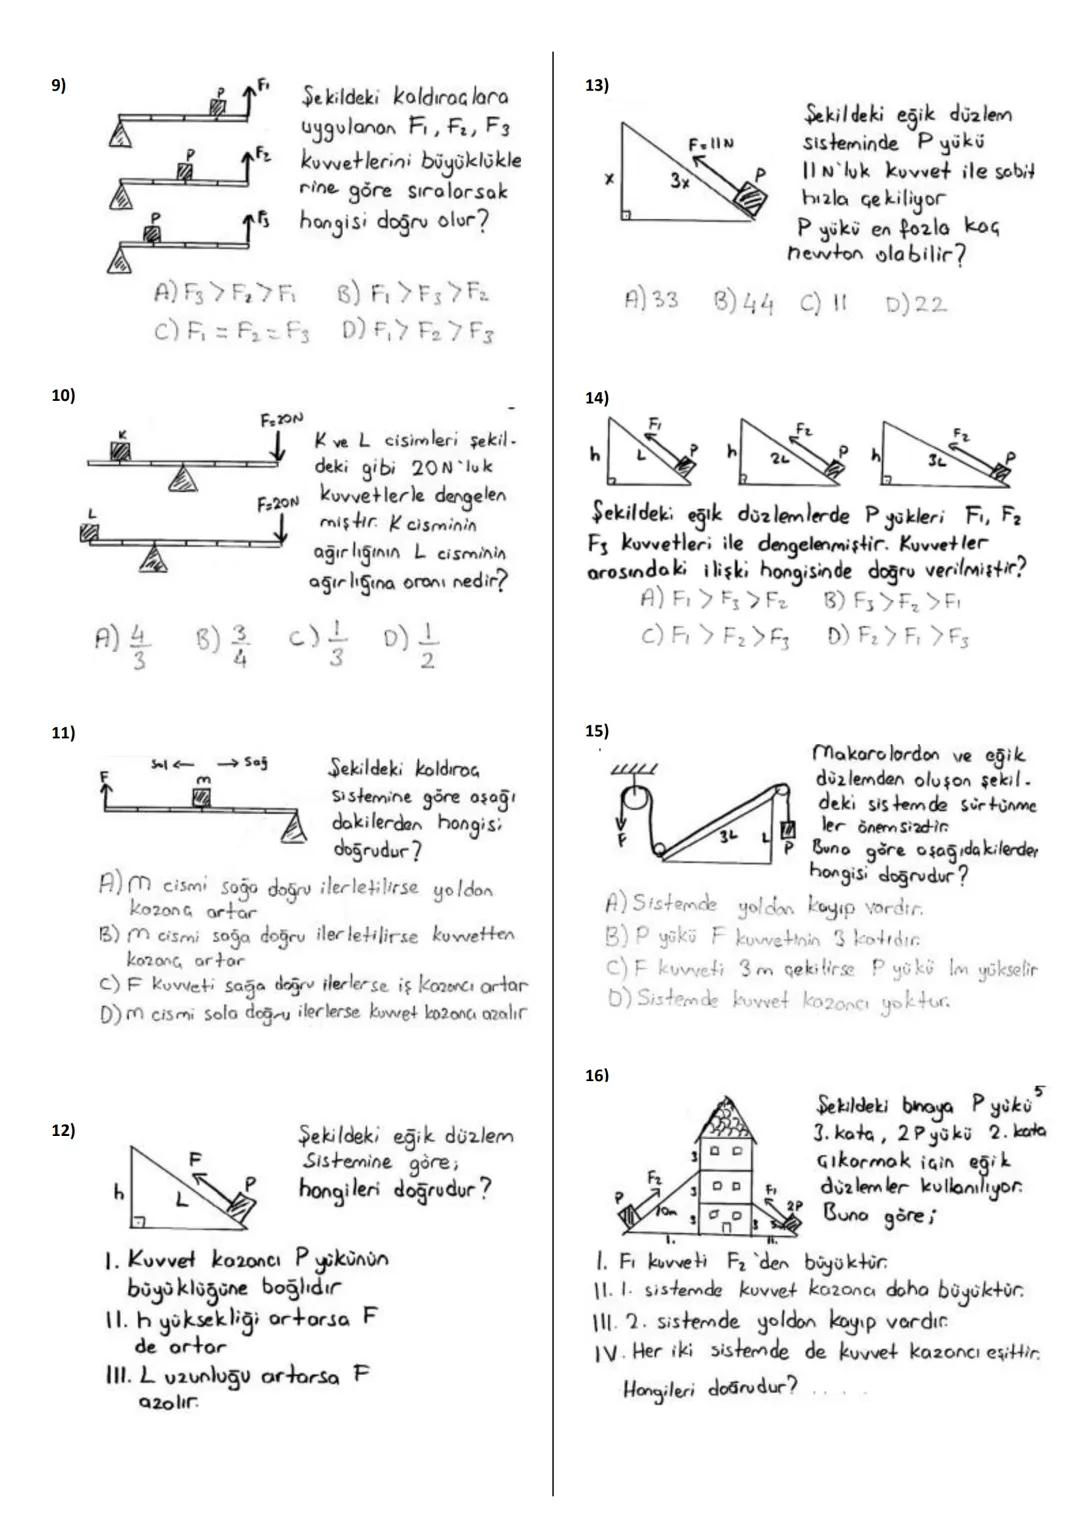 9)
P
F₁
P
F₂
P
F₃
Şekildeki kaldıraçlara
uygulanan F₁, F₂, F₃
kuvvetlerini büyüklükle
rine göre sıralarsak
hangisi doğru olur?
A) F₃ > F₂ > F₁ B) F₁ > F₃ > F₂
C) F₁ = F₂ = F₃ D) F₁ > F₂ > F₃
10)
K
F=20N
L
F=20N
K ve L cisimleri şekil-
deki gibi 20N'luk
kuvvetlerle dengelen
miştir. K cisminin
ağırlığının L cisminin
ağırlığına oranı nedir?
A) 4/3 B) 3/4 C) 1/3 D) 1/2
11)
F
Sol ← → Sağ
m
Şekildeki kaldıraç
sistemine göre aşağı
dakilerden hangisi
doğrudur?
A) m cismi sağa doğru ilerletilirse yoldan
kazanç artar
B) m cismi sağa doğru ilerletilirse kuvvetten
kazanç artar
C) F kuvveti sağa doğru ilerlerse iş kazancı artar
D) m cismi sola doğru ilerlerse kuvvet kazancı azalır
12)
h
L
F
P
Şekildeki eğik düzlem
sistemine göre;
hangileri doğrudur?
I. Kuvvet kazancı P yükünün
büyüklüğüne bağlıdır
II. h yüksekliği artarsa F
de artar
III. L uzunluğu artarsa F
azalır.
13)
x
3x
F=11N
P
Şekildeki eğik düzlem
sisteminde P yükü
11N'luk kuvvet ile sabit
hızla çekiliyor
P yükü en fazla kaç
newton olabilir?
A) 33 B) 44 C) 11 D) 22
14)
h L F₁ P
h 2L F₂ P
h 3L F₂ P
Şekildeki eğik düzlemlerde P yükleri F₁, F₂
F₃ kuvvetleri ile dengelenmiştir. Kuvvetler
arasındaki ilişki hangisinde doğru verilmiştir?
A) F₁ > F₃ > F₂ B) F₃ > F₂ > F₁
C) F₁ > F₂ > F₃ D) F₂ > F₁ > F₃
15)
F
3L
L
P
Makaralardan ve eğik
düzlemden oluşan şekil-
deki sistemde sürtünme
ler önemsizdir.
Buna göre aşağıdakilerden
hangisi doğrudur?
A) Sistemde yoldan kayıp vardır.
B) P yükü F kuvvetinin 3 katıdır.
C) F kuvveti 3m çekilirse P yükü 1m yükselir
D) Sistemde kuvvet kazancı yoktur.
16)
P
F₂
10m
3
3
3
3
5
F₁
2P
I.
II.
Şekildeki binaya P yükü 5
3. kata, 2P yükü 2. kata
çıkarmak için eğik
düzlemler kullanılıyor.
Buna göre;
I. F₁ kuvveti F₂'den büyüktür.
II. 1. sistemde kuvvet kazancı daha büyüktür.
III. 2. sistemde yoldan kayıp vardır.
IV. Her iki sistemde de kuvvet kazancı eşittir.
Hangileri doğrudur? ....